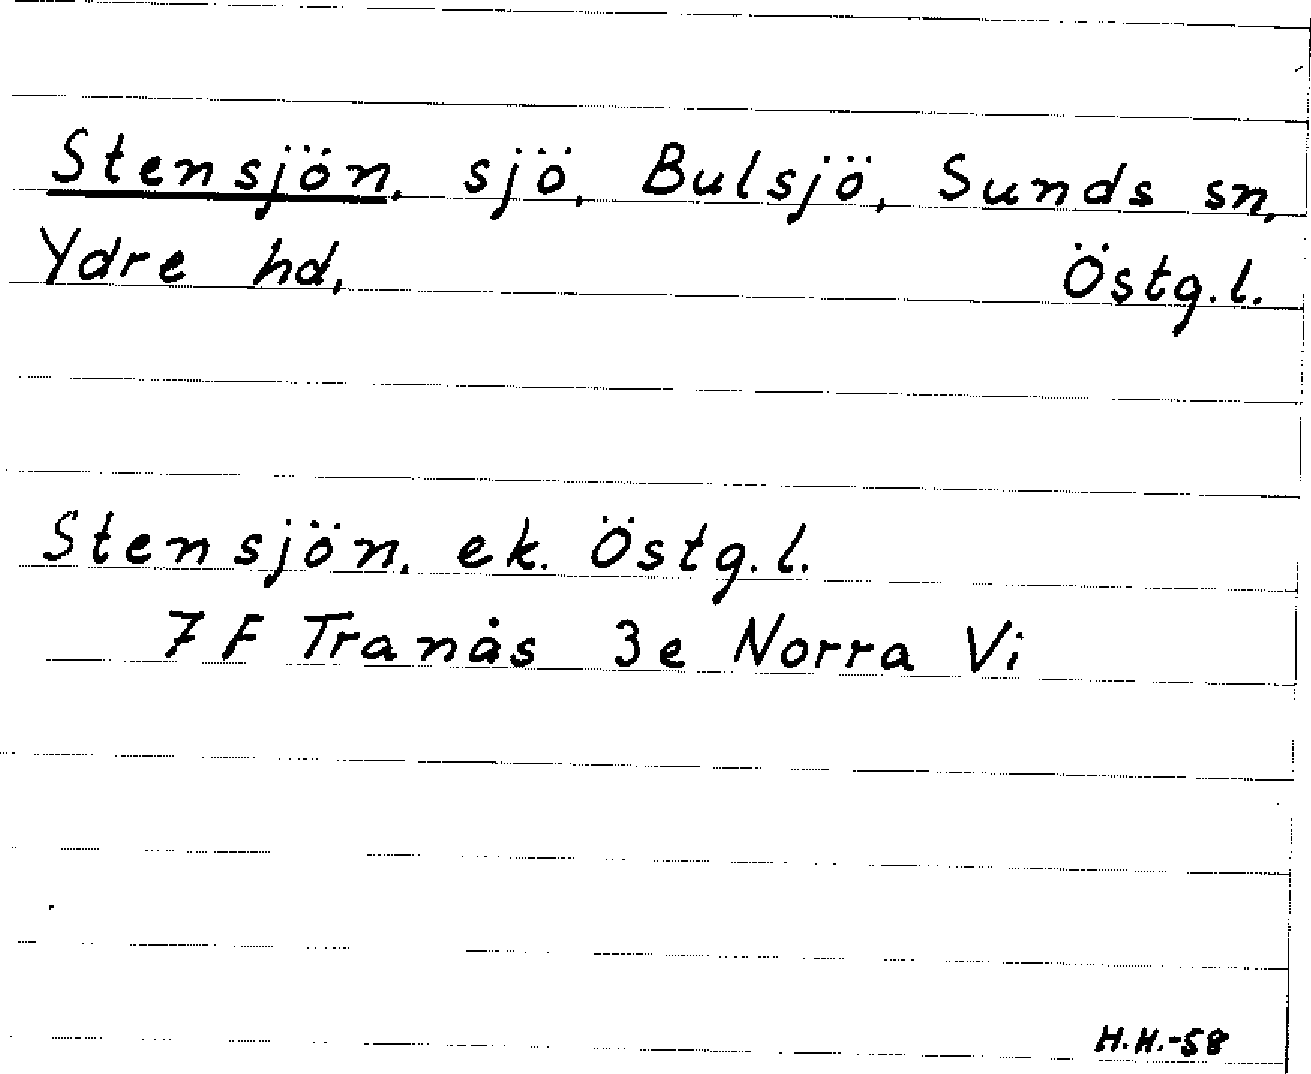 Stensjön, sjö, Bulsjö, Sunds sn,
Ydre hd, Östg.l.
Stensjön, ek. Östg.l.
7 F Tranås 3e Norra Vi
H.H.-58